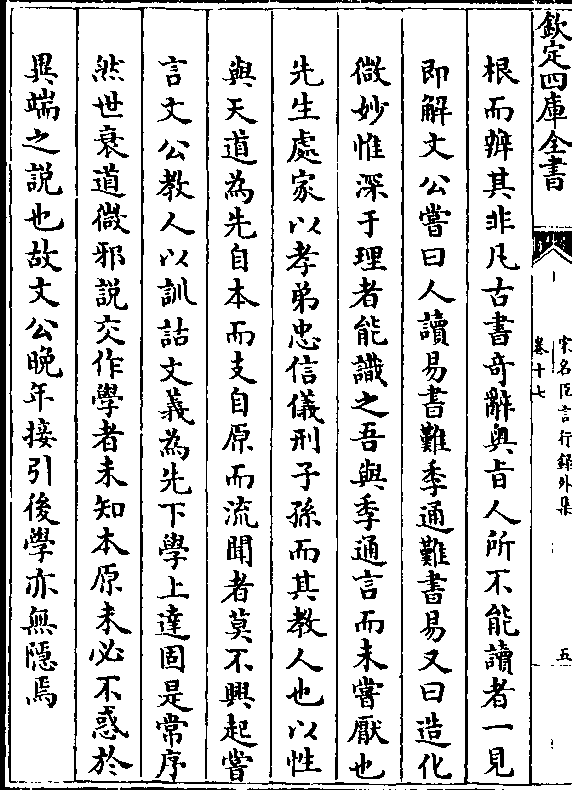 欽定四庫全書
宋名臣言行錄外集
卷十七
五
根而辨其非凡古書奇辭奧旨人所不能讀者一見
即解文公嘗曰人讀易書難季通難書易又曰造化
微妙惟深于理者能識之吾與季通言而未嘗厭也
先生處家以孝弟忠信儀刑子孫而其教人也以性
與天道為先自本而支自原而流聞者莫不興起嘗
言文公教人以訓詁文義為先下學上達固是常序
然世衰道微邪說交作學者未知本原未必不惑於
異端之說也故文公晚年接引後學亦無隱焉